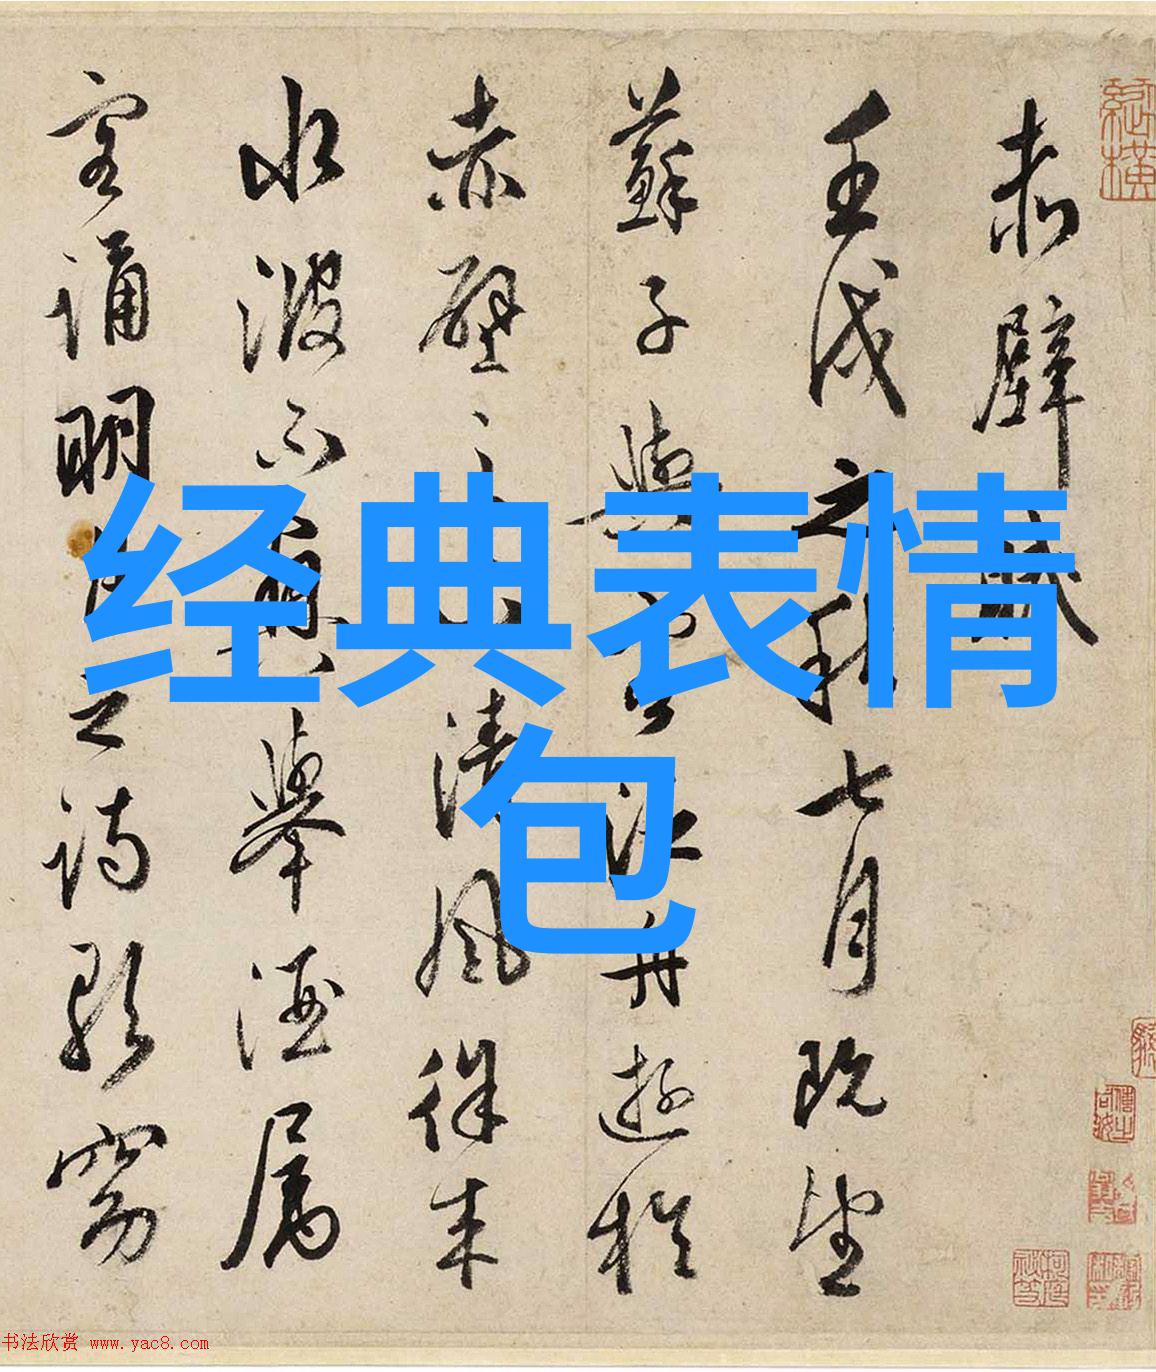 赤壁賦
壬戌之秋七月既望
蘇子與客泛舟遊於
赤壁之下清風徐来
水波不興舉酒属
客誦明月之詩歌窈
经典表情
包
书法欣赏 www.yac8.com